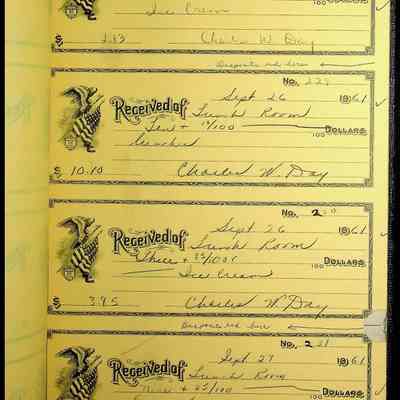 Ice Cream 100 DOLLARS
$ 2.13 Charles W. Day
Deposits ends here
No. 229
Sept 26 1961
Received of Lunch Room
Ten + 10/100 100 DOLLARS
Lunches
$ 10.10 Charles W. Day
No. 230
Sept 26 1961
Received of Lunch Room
Three + 95/100 100 DOLLARS
Ice Cream
$ 3.95 Charles W. Day
No. 231
Sept 27 1961
Received of Lunch Room
100 DOLLARS